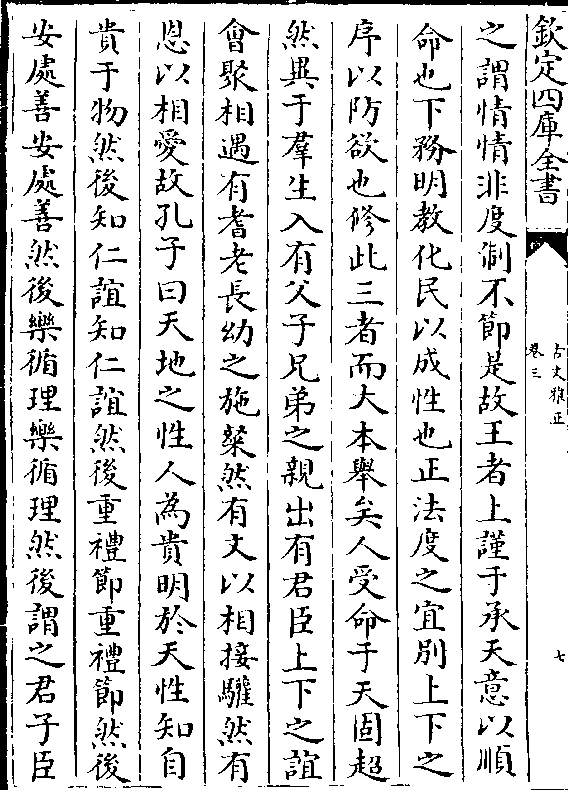 欽定四庫全書
古文雅正
卷三
七
之謂情情非度制不節是故王者上謹于承天意以順
命也下務明教化民以成性也正法度之宜别上下之
序以防欲也修此三者而大本舉矣人受命于天固超
然異于羣生入有父子兄弟之親出有君臣上下之誼
會聚相遇有耆老長幼之施粲然有文以相接驩然有
恩以相愛故孔子曰天地之性人為貴明於天性知自
貴于物然後知仁誼知仁誼然後重禮節重禮節然後
安處善安處善然後樂循理樂循理然後謂之君子臣